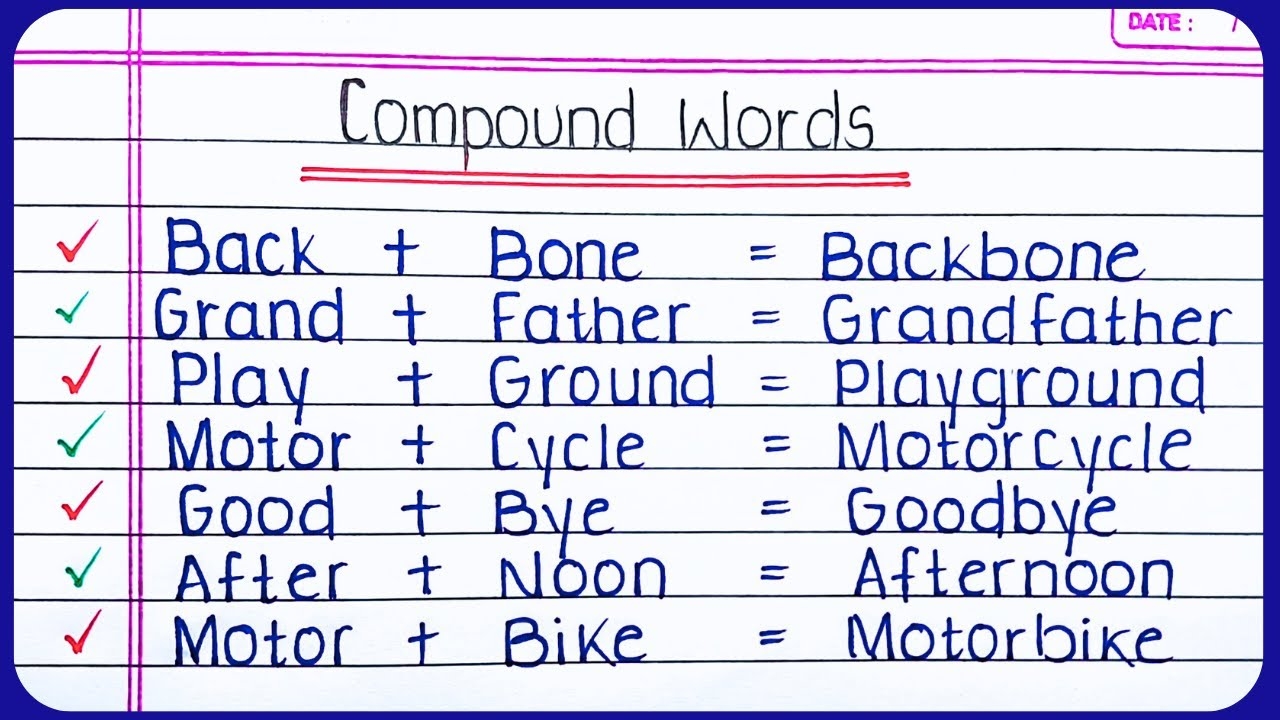 DATE: /
Compound Words
Back + Bone = Backbone
Grand + Father = Grandfather
Play + Ground = Playground
Motor + Cycle = Motorcycle
Good + Bye = Goodbye
After + Noon = Afternoon
Motor + Bike = Motorbike